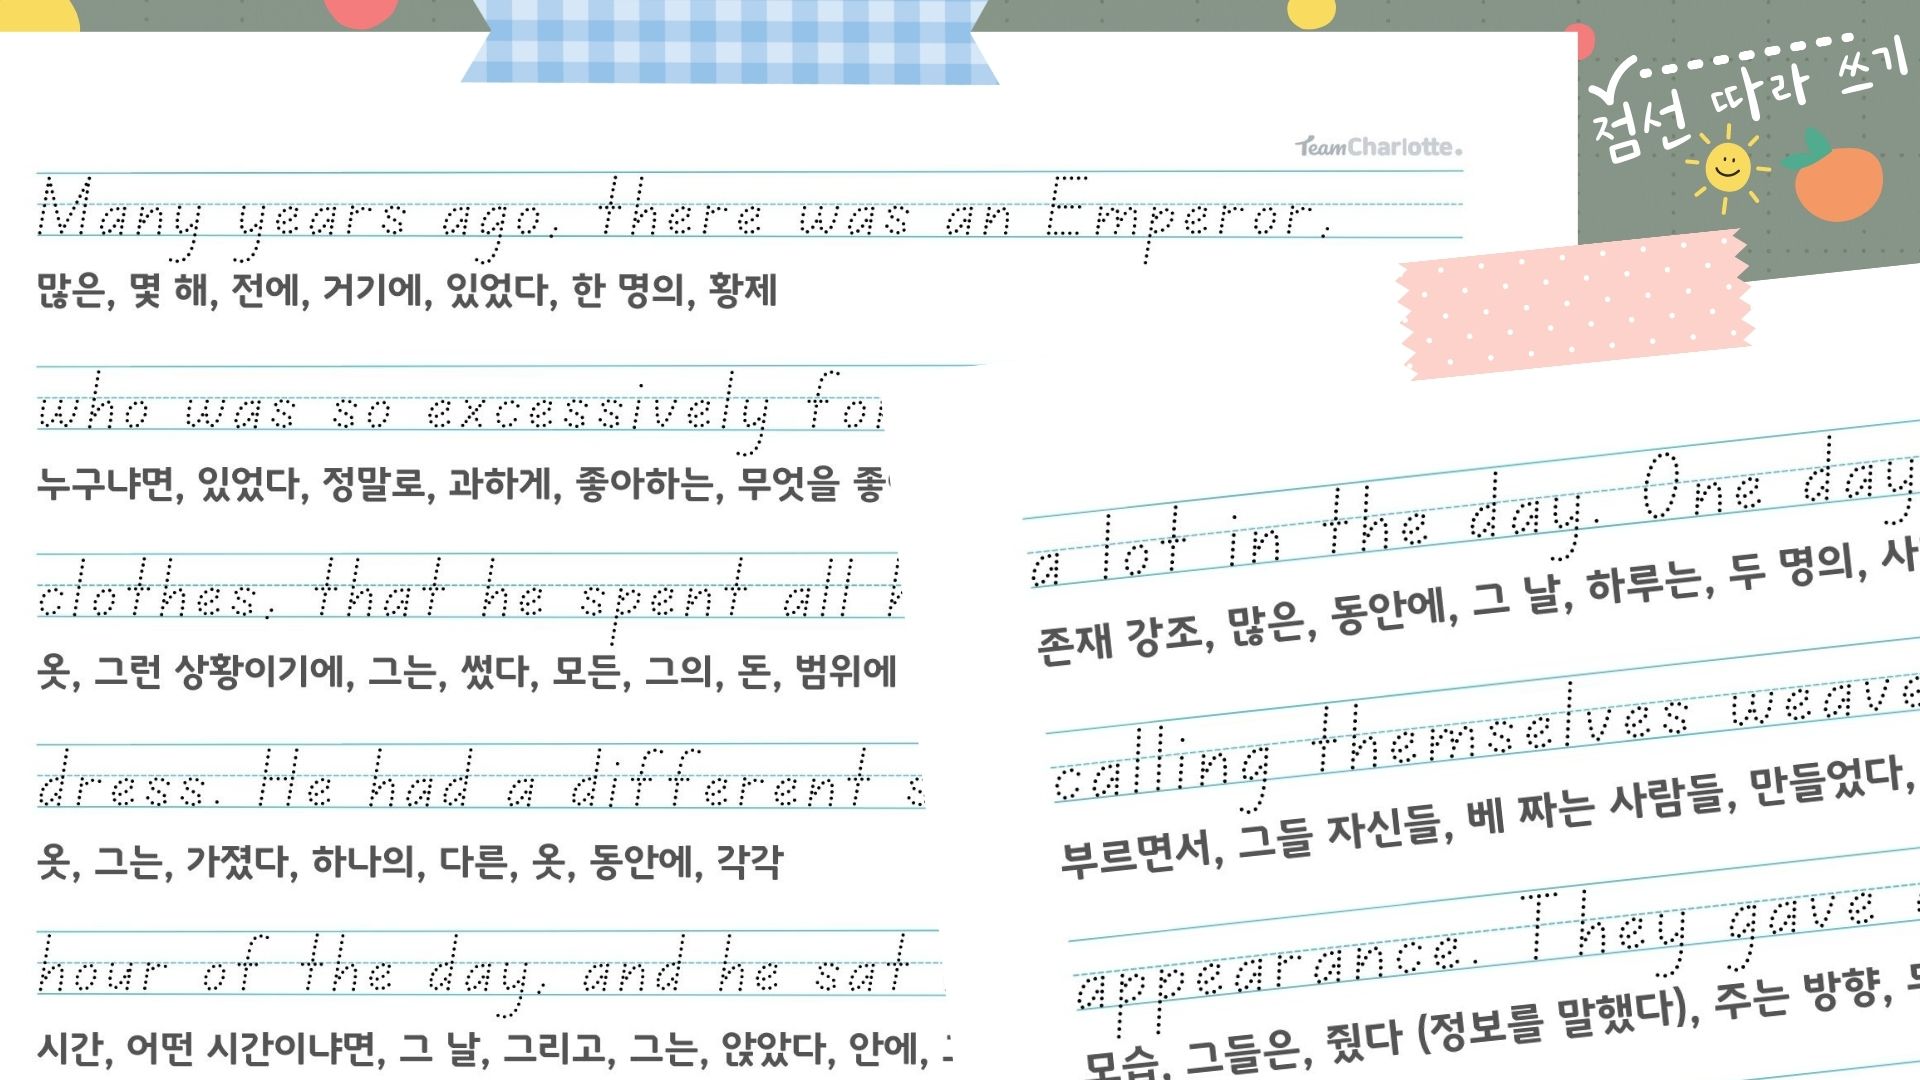 TeamCharlotte.
점선 따라 쓰기
Many years ago, there was an Emperor,
많은, 몇 해, 전에, 거기에, 있었다, 한 명의, 황제
who was so excessively
누구냐면, 있었다, 정말로, 과하게, 좋아하는, 무엇을
clothes, that he spent all
옷, 그런 상황이기에, 그는, 썼다, 모든, 그의, 돈, 범위에
dress. He had a different
옷, 그는, 가졌다, 하나의, 다른, 옷, 동안에, 각각
hour of the day, and he sat
시간, 어떤 시간이냐면, 그 날, 그리고, 그는, 앉았다, 안에,
a lot in the day. One day
존재 강조, 많은, 동안에, 그 날, 하루는, 두 명의,
calling themselves
부르면서, 그들 자신들, 베 짜는 사람들, 만들었다,
appearance. They gave
모습, 그들은, 줬다 (정보를 말했다), 주는 방향,